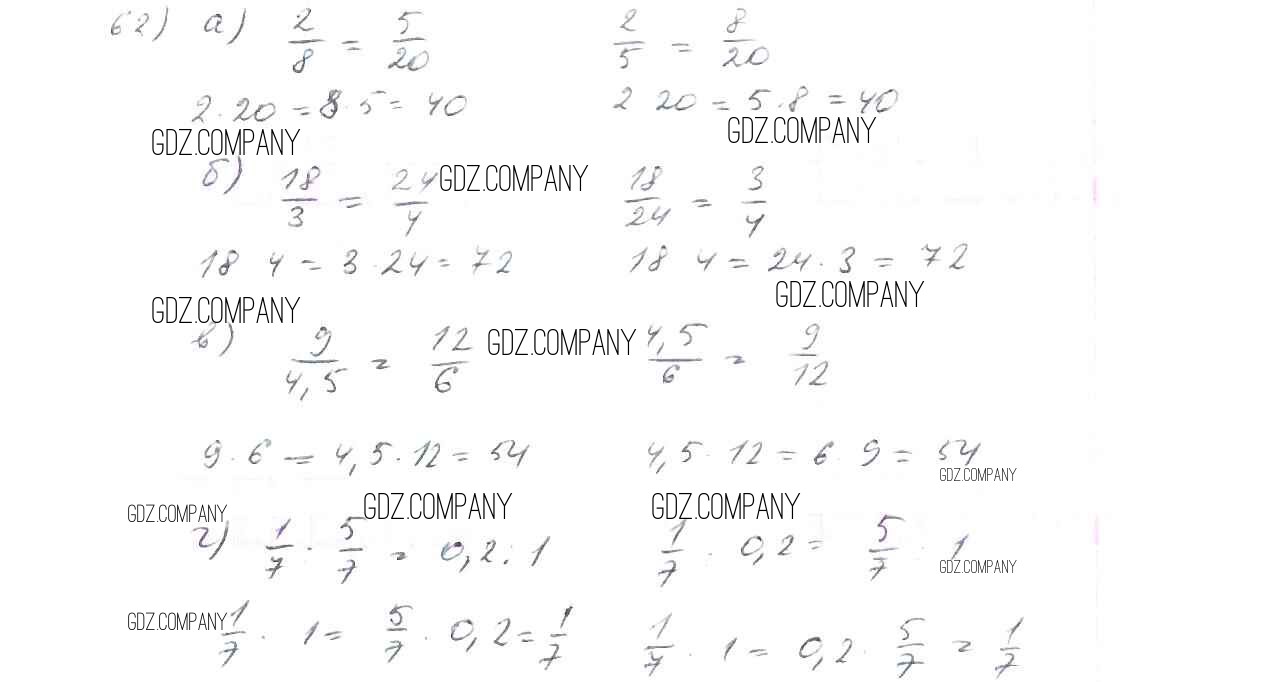 62) а) 2/8 = 5/20    2/5 = 8/20
2·20 = 8·5 = 40    2 20 = 5·8 = 40
GDZ.COMPANY    GDZ.COMPANY
б) 18/3 = 24/4    GDZ.COMPANY    18/24 = 3/4
18 4 = 3·24 = 72    18 4 = 24·3 = 72
GDZ.COMPANY    GDZ.COMPANY
в) 9/4,5 = 12/6    GDZ.COMPANY    4,5/6 = 9/12
9·6 = 4,5·12 = 54    4,5·12 = 6·9 = 54
GDZ.COMPANY
GDZ.COMPANY    GDZ.COMPANY    GDZ.COMPANY
г) 1/7 : 5/7 = 0,2 : 1    1/7 : 0,2 = 5/7 : 1
GDZ.COMPANY
GDZ.COMPANY    1/7 · 1 = 5/7 · 0,2 = 1/7    1/7 · 1 = 0,2 · 5/7 = 1/7